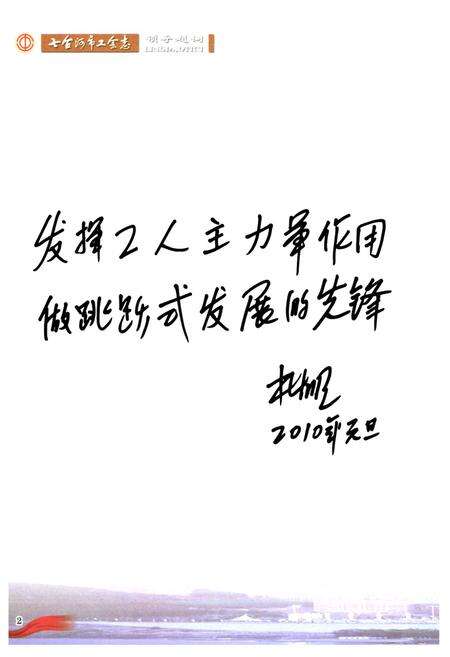 七台河市工会志 领导题词
LINGDAOTICI
发挥工人主力军作用
做跳跃式发展的先锋
2010年元旦
2